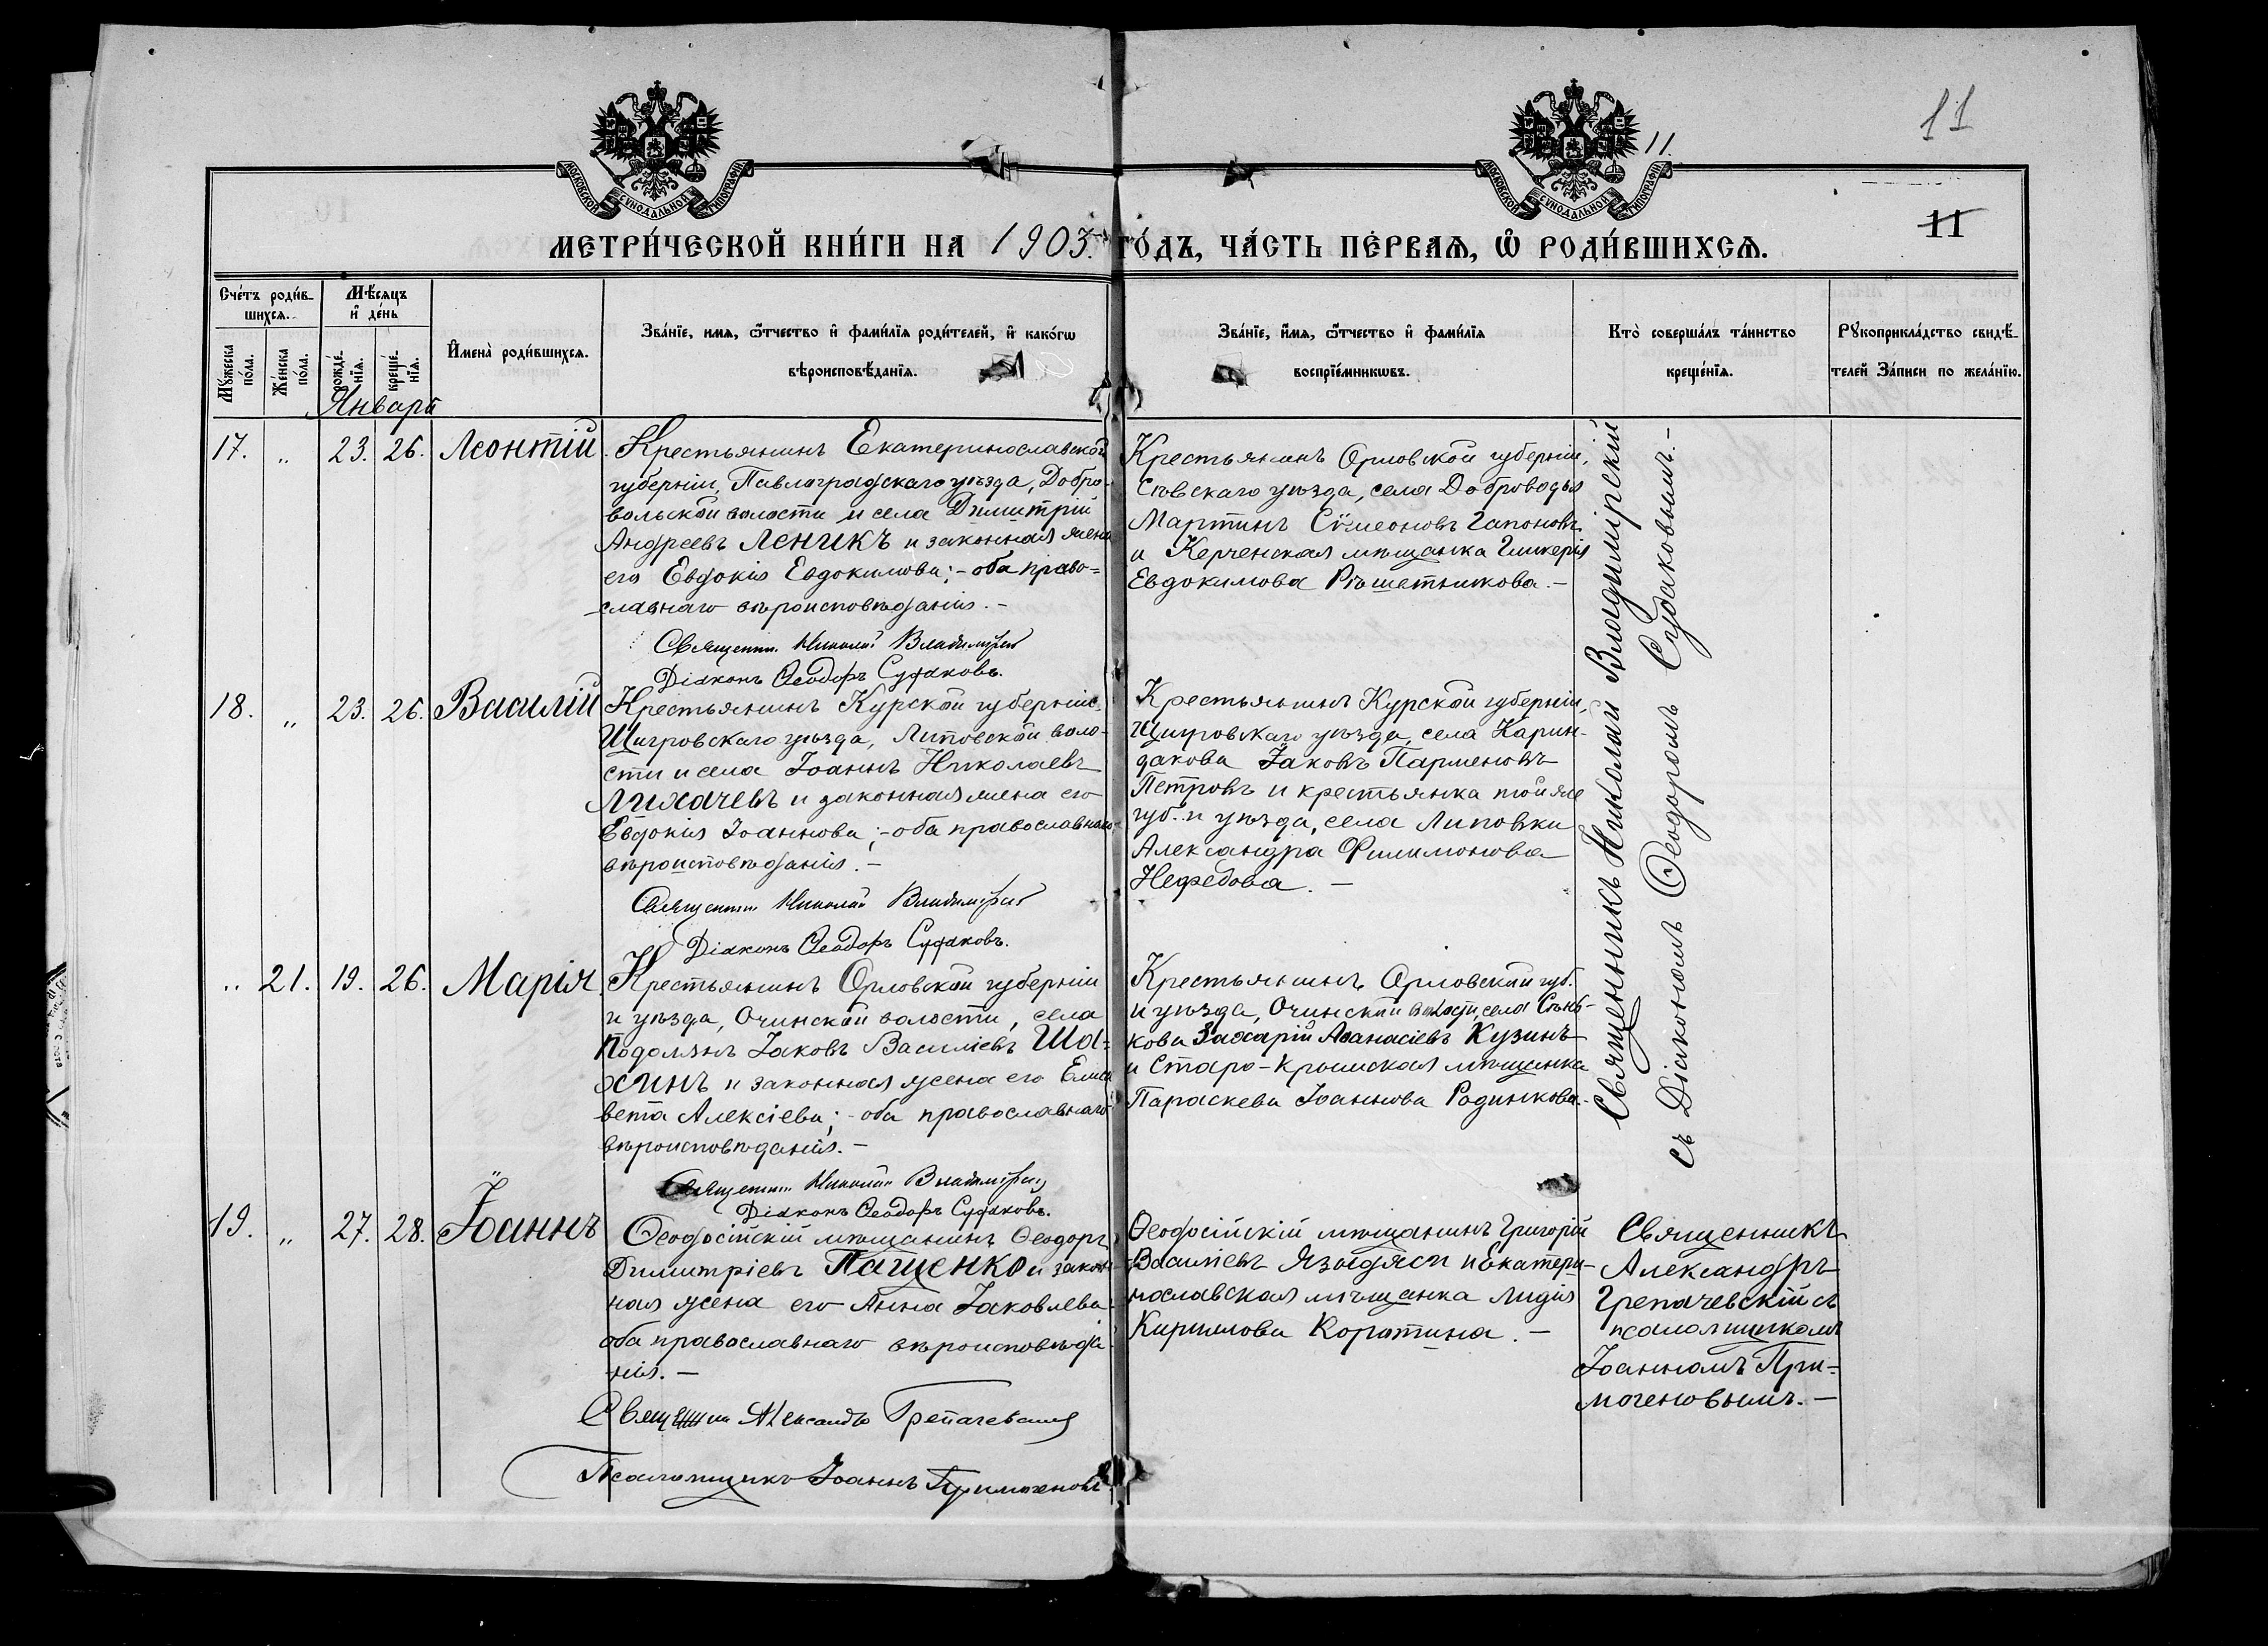 11
11.
11
МОСКОВСКОЙ СѴНОДАЛЬНОЙ ТИПОГРАФІИ
МОСКОВСКОЙ СѴНОДАЛЬНОЙ ТИПОГРАФІИ
МЕТРИ́ЧЕСКОЙ КНИ́ГИ НА 1903. ГО́ДЪ, ЧА́СТЬ ПЕ́РВАЯ, Ѽ РОДИ́ВШИХСЯ.
Сче́тъ роди́в-
шихся.
Мѣ́сяцъ
и де́нь
Мꙋ́жеска по́ла.
Же́нска по́ла.
рожде́нїя.
креще́нїя.
Имена̀ роди́вшихся.
Зва́нїе, имя, ѻ҆́тчество и фами́лїя роди́телей, и како́гѡ
вѣроисповѣ́данїя.
Зва́нїе, и́мя, ѻ҆́тчество и фами́лїя
воспрїе́мникѡвъ.
Кто̀ соверша́лъ та́инство
креще́нїя.
Рꙋкоприкла́дство свидѣ́-
телей За́писи по жела́нїю.
Января
17. „ 23. 26. Леонтій.
Крестьянинъ Екатеринославской
губерніи, Павлоградскаго уѣзда, Добро-
вольской волости и села Димитрій
Андреевъ Леникъ и законная жена
его Евдокія Евдокимова; - оба право=
славнаго вѣроисповѣданія. -
Священник Николай Владимірскій
Діаконъ Ѳеодоръ Судаковъ.
Крестьянинъ Орловской губерніи,
Сѣвскаго уѣзда, села Доброводья
Мартинъ Сѵмеоновъ Гапоновъ
и Керченская мѣщанка Гликерія
Евдокимова Рѣшетникова. -
18. „ 23. 26. Василій
Крестьянинъ Курской губерніи,
Щигровскаго уѣзда, Липовской воло-
сти и села Іоаннъ Николаевъ
Лихачевъ и законная жена его
Евдокія Іоаннова; - оба православнаго
вѣроисповѣданія. -
Священник Николай Владимірскій
Діаконъ Ѳеодоръ Судаковъ.
Крестьянинъ Курской губерніи,
Щигровскаго уѣзда, села Каран-
дакова Іаковъ Парменовъ
Петровъ и крестьянка той же
губ. и уѣзда, села Липовки
Александра Филимонова
Нефедова. -
„ 21. 19. 26. Марія.
Крестьянинъ Орловской губерніи
и уѣзда, Очинской волости, села
Подолянъ Іаковъ Василіевъ Ша=
хинъ и законная жена его Елиса
вета Алексіева; - оба православнаго
вѣроисповѣданія. -
Священник Николай Владимірскій
Діаконъ Ѳеодоръ Судаковъ.
Крестьянинъ Орловской губ.
и уѣзда, Очинской волости, села Сѣнь-
кова Захарій Аѳанасіевъ Кузинъ
и Старо-Крымская мѣщанка
Параскева Іоаннова Родинкова. -
Священникъ Николай Владимірскій
съ Діакономъ Ѳеодоромъ Судаковымъ. -
19. „ 27. 28. Іоаннъ
Ѳеодосійскій мѣщанинъ Ѳеодоръ
Димитріевъ Пащенко и закон-
ная жена его Анна Іаковлева -
оба православнаго вѣроисповѣда
нія. -
Священник Александръ Грепачевскій
Псаломщикъ Іоаннъ Примогеновъ
Ѳеодосійскій мѣщанинъ Григорій
Василіевъ и Екатери-
нославская мѣщанка Лидія
Кириллова Коротина. -
Священникъ
Александръ
Грепачевскій съ
псаломщикомъ
Іоанномъ При=
могеновымъ. -